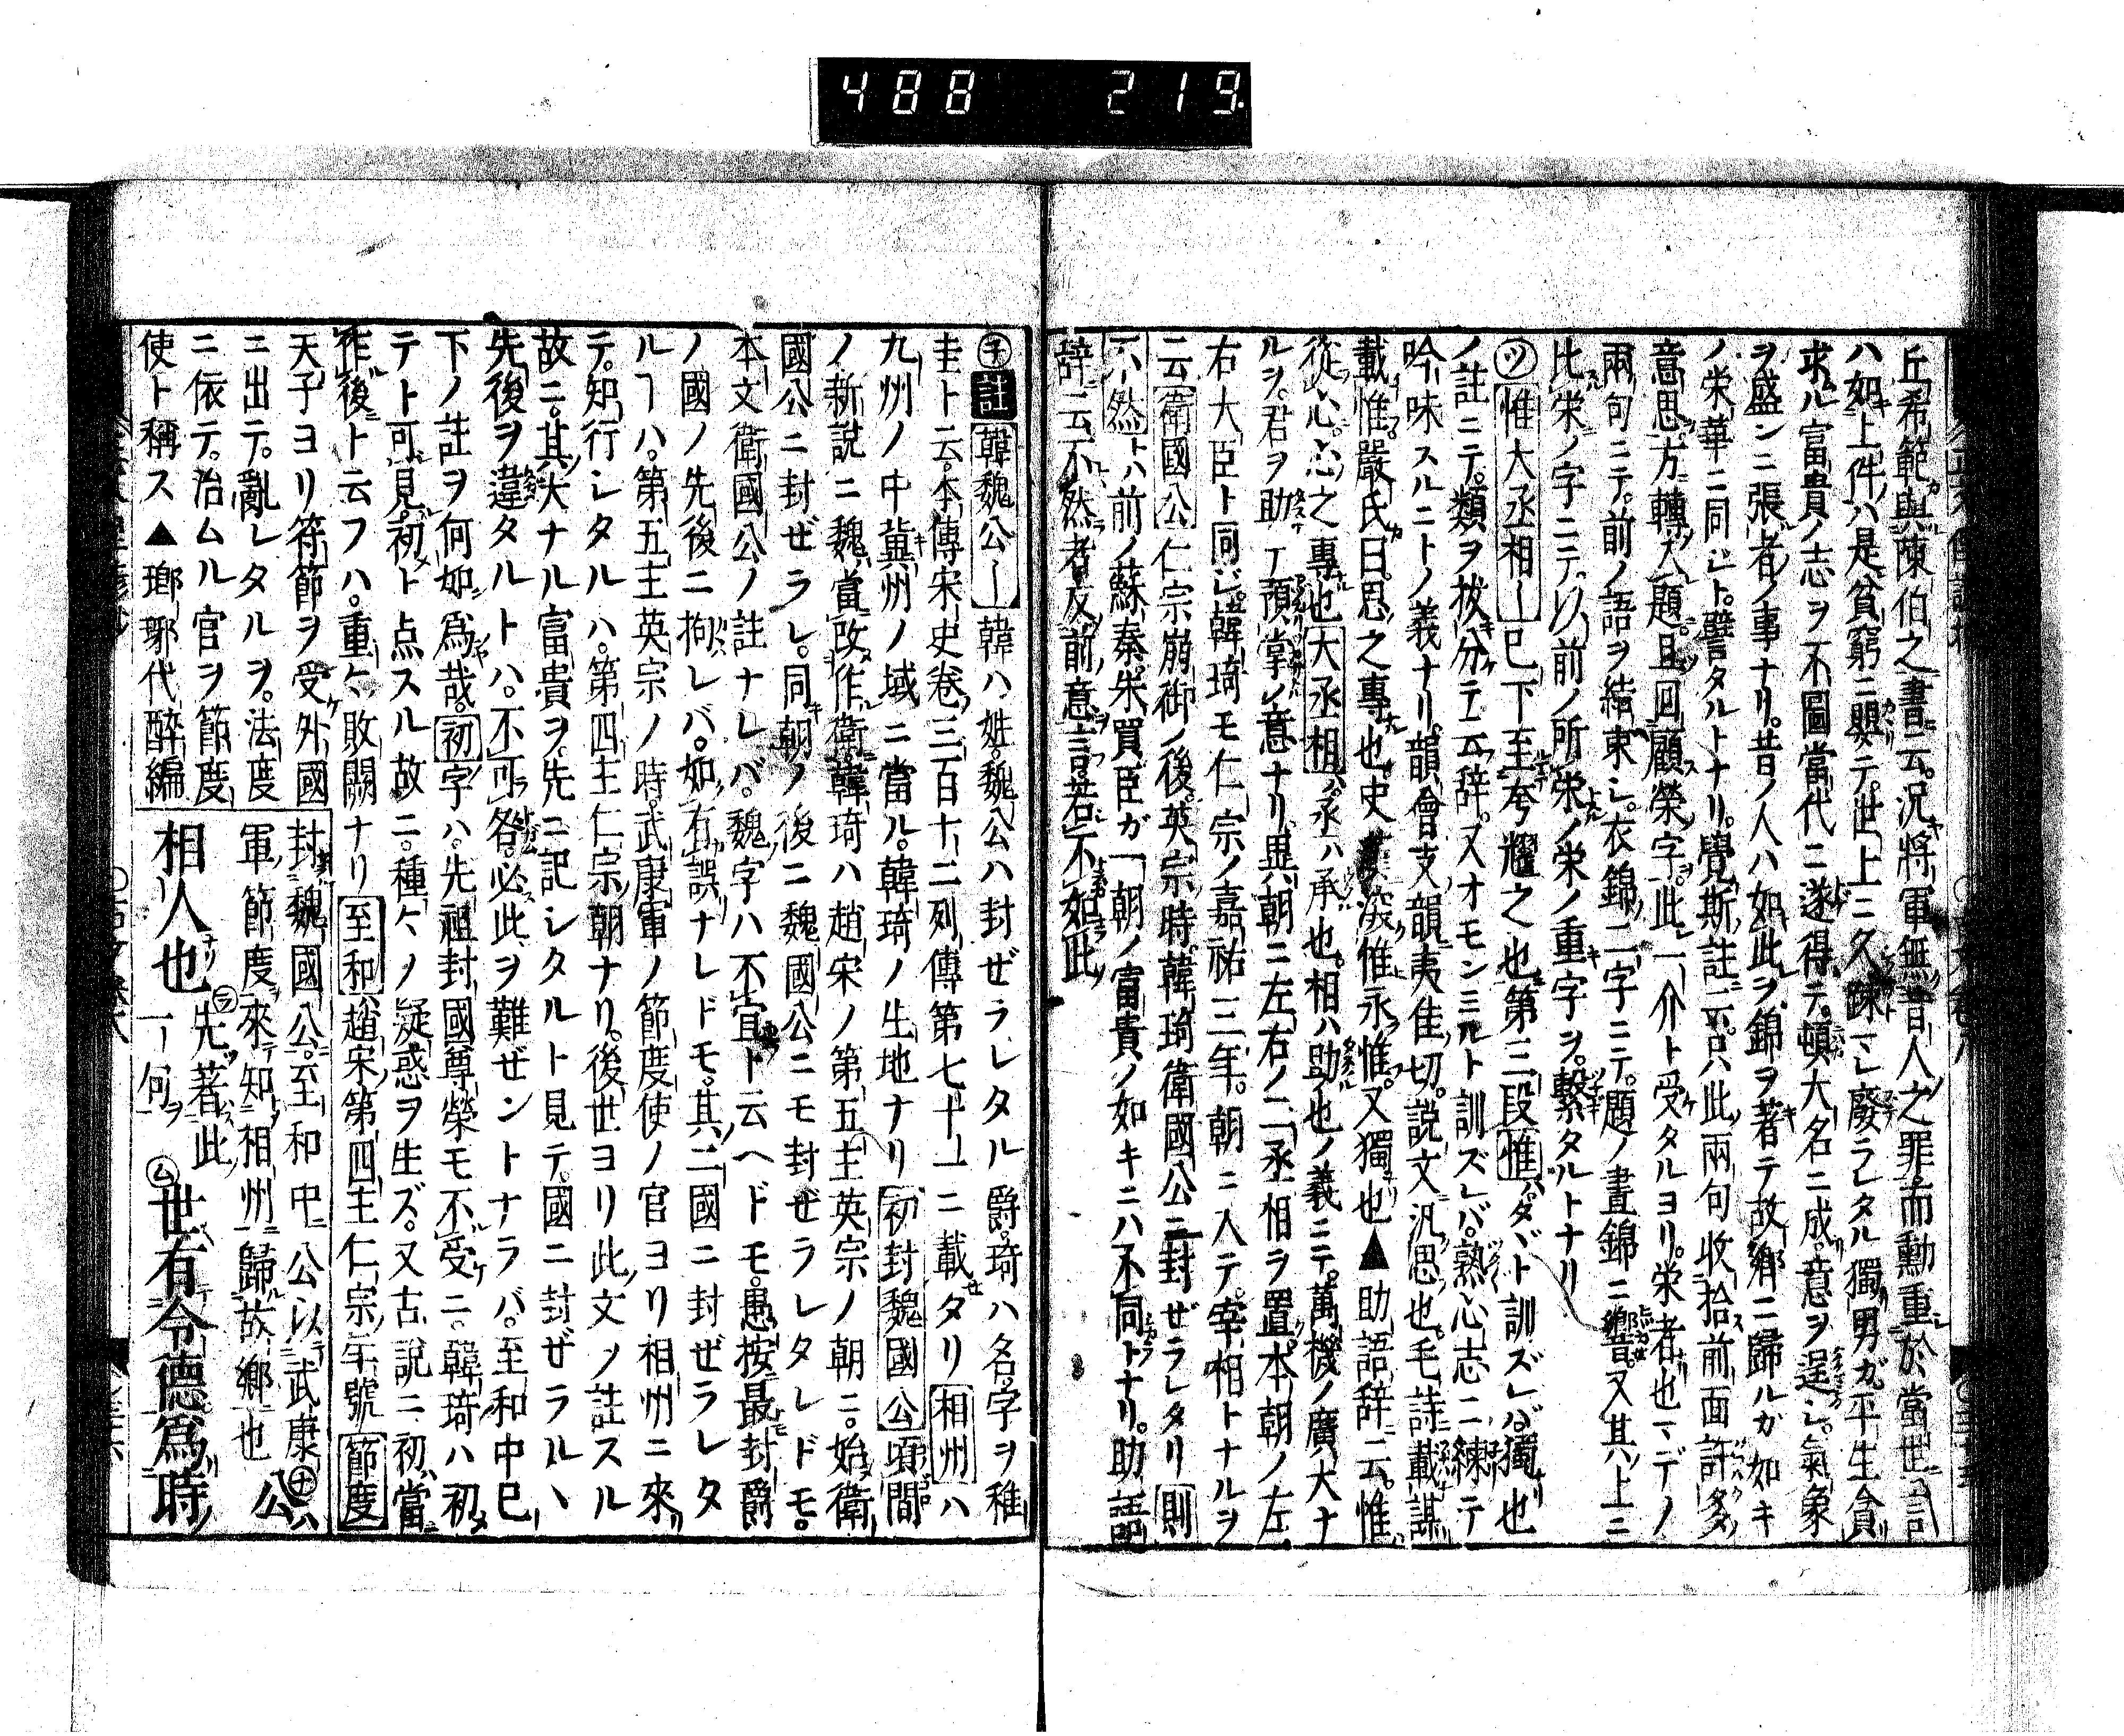 488 219
丘希範與陳伯之書云。况將軍無昔人之罪而勳重於當世言
ハ如上件ハ是貧窮ニ嬰テ。世上ニ久疎マレ廢ラレタル獨男ガ平生貪
求ル富貴ノ志ヲ不圖當代ニ遂得テ。頓大名ニ成。意ヲ逞シ。氣象
ヲ盛ンニ張者ノ事ナリ。昔ノ人ハ如此ヲ錦ヲ著テ故郷ニ歸ルガ如キ
ノ栄華ニ同ジト。譬タルトナリ。覺斯註云。只此兩句收拾前面許多
意思方轉入題。且回顧榮字。此一介ト受タルヨリ。栄者也マデノ
兩句ニテ。前ノ語ヲ結束シ。衣錦ノ二字ニテ。題ノ晝錦ニ響。又其上ニ
比栄ノ字ニテ。以前ノ所栄ノ栄ノ重字ヲ。繫タルトナリ
ツ惟大丞相｜已下至夸耀之也第三段惟ハタヾト訓ズレバ。獨也
ノ註ニテ。類ヲ拔分テ云辞。又オモンミルト訓ズレバ。熟心志ニ練テ
吟味スルニトノ義ナリ。韻會支韻夷隹切。説文汎思也。毛詩載謀
載惟。嚴氏曰。思之專也。史 惟永惟。又獨也▲助語辞云。惟
從心。心之專也大丞相ハ。丞ハ承也。相ハ助也ノ義ニテ。萬機ノ廣大ナ
ルヲ。君ヲ助テ預掌ノ意ナリ。異朝ニ左右ノ二丞相ヲ置。本朝ノ左
右大臣ト同ジ。韓琦モ仁宗ノ嘉祐三年。朝ニ入テ。宰相トナルヲ
云衛國公仁宗崩御ノ後。英宗時。韓琦衛國公ニ封ゼラレタリ則
不然トハ前ノ蘇秦。朱買臣ガ一朝ノ富貴ノ如キニハ不同トナリ。助語
辞云不然者反前意言。若不如此
子註韓魏公｜韓ハ姓。魏公ハ封ゼラレタル爵。琦ハ名。字ヲ稚
圭ト云。本傳宋史卷三百十二列傳第七十一ニ載タリ相州ハ
九州ノ中冀州ノ域ニ當ル。韓琦ノ生地ナリ初封魏國公頃間
ノ新説ニ魏當改作衛。韓琦ハ趙宋ノ第五主英宗ノ朝ニ。始衛
國公ニ封ゼラレ。同朝ノ後ニ魏國公ニモ封ゼラレタレドモ。
本文衛國公ノ註ナレバ。魏字ハ不宜ト云ヘドモ。愚按最封爵
ノ國ノ先後ニ拘レバ。如有誤ナレドモ。其二國ニ封ゼラレタ
ルヿハ。第五主英宗ノ時。武康軍ノ節度使ノ官ヨリ相州ニ來
テ。知行シタルハ。第四主仁宗ノ朝ナリ。後世ヨリ此文ノ註スル
故ニ。其大ナル富貴ヲ。先ニ記シタルト見テ。國ニ封ゼラルヽ
先後ヲ違タルトハ。不可各。必此ヲ難ゼントナラバ。至和中已
下ノ註ヲ何如爲哉。初字ハ。先祖封國尊榮モ不受ニ。韓琦ハ初
テト可見。初ト点スル故ニ。種々ノ疑惑ヲ生ズ。又古説ニ初當
作後ト云フハ。重々敗闕ナリ至和趙宋第四主仁宗ノ年號節度
天子ヨリ符節ヲ受外國
ニ出テ。亂レタルヲ。法度
ニ依テ。治ムル官ヲ節度
使ト稱ス▲瑯琊代醉編
封魏國公。至和中公以武康ナ
軍節度來知相州歸故郷也 公
相人也ラ先著此一何ム世有令德爲時